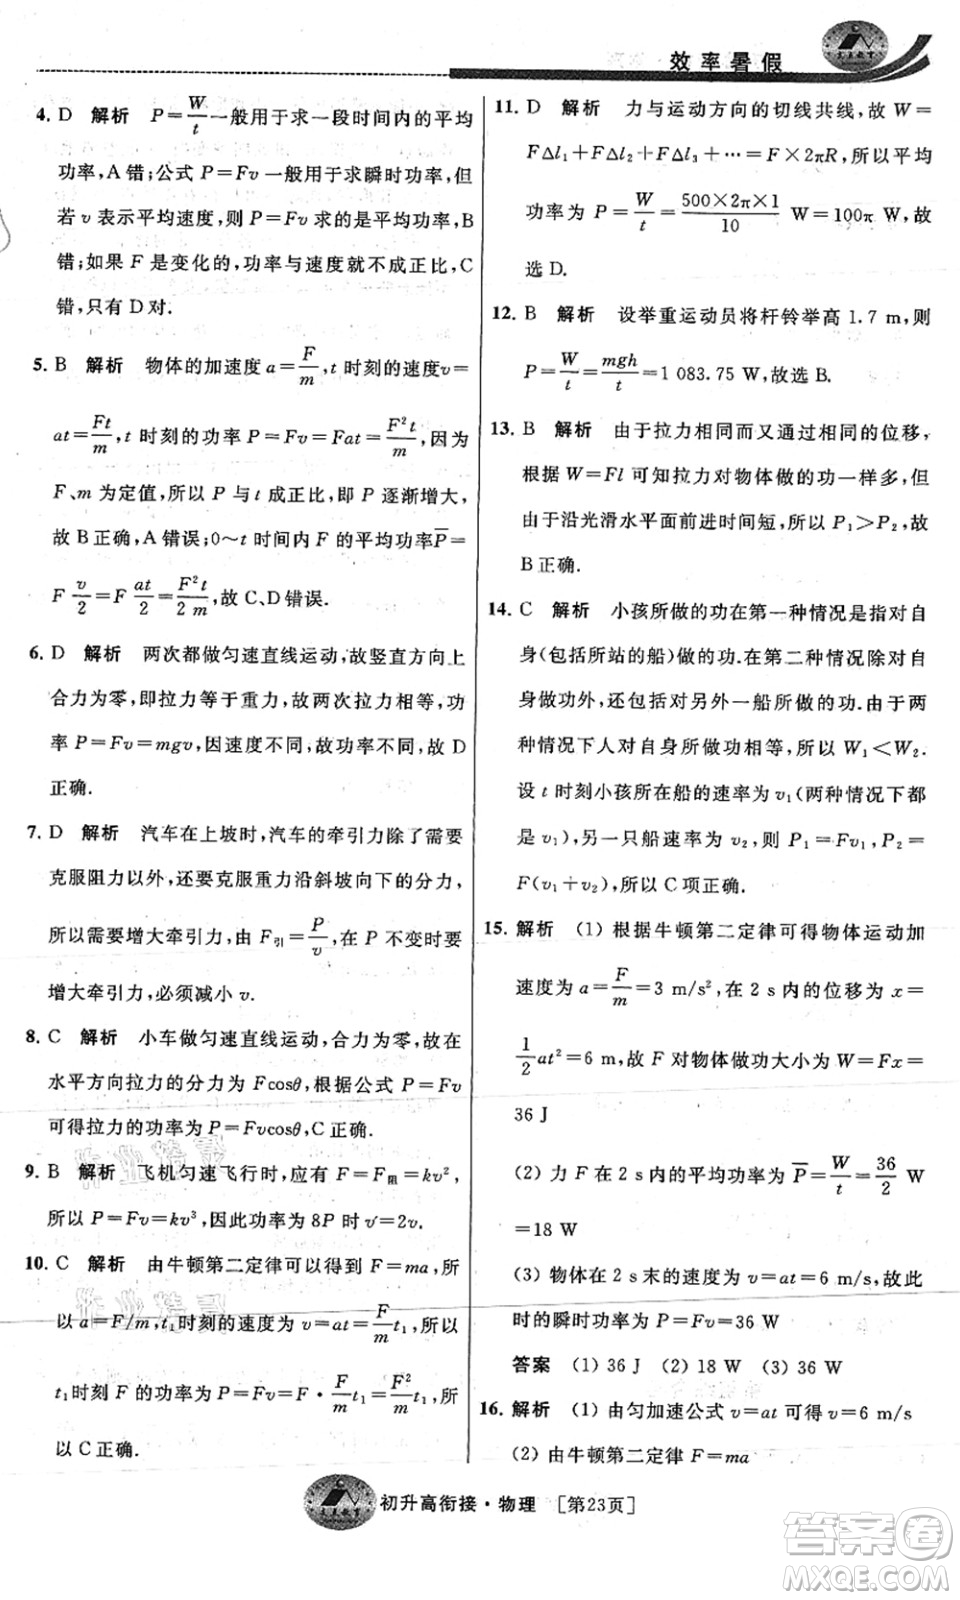 效率暑假
4. D 解析 P=W/t一般用于求一段时间内的平均
功率,A错;公式 P=Fv一般用于求瞬时功率,但
若 v 表示平均速度,则 P=Fv 求的是平均功率,B
错;如果 F 是变化的,功率与速度就不成正比,C
错,只有 D 对.
5. B 解析 物体的加速度 a=F/m,t 时刻的速度v=
at=Ft/m,t 时刻的功率 P=Fv=Fat=F²t/m,因为
F、m 为定值,所以 P 与 t 成正比,即 P 逐渐增大,
故 B 正确,A 错误;0~t 时间内 F 的平均功率P̅=
F v/2=F at/2=F²t/2m,故 C、D 错误.
6. D 解析 两次都做匀速直线运动,故竖直方向上
合力为零,即拉力等于重力,故两次拉力相等,功
率 P=Fv=mgv,因速度不同,故功率不同,故 D
正确.
7. D 解析 汽车在上坡时,汽车的牵引力除了需要
克服阻力以外,还要克服重力沿斜坡向下的分力,
所以需要增大牵引力,由 F引=P/v,在 P 不变时要
增大牵引力,必须减小 v.
8. C 解析 小车做匀速直线运动,合力为零,故在
水平方向拉力的分力为 Fcosθ,根据公式 P=Fv
可得拉力的功率为 P=Fvcosθ,C 正确.
9. B 解析 飞机匀速飞行时,应有 F=F阻=kv²,
所以 P=Fv=kv³,因此功率为 8P 时 v′=2v.
10. C 解析 由牛顿第二定律可以得到 F=ma,所
以 a=F/m,t₁时刻的速度为 v=at=F/m t₁,所以
t₁时刻 F 的功率为 P=Fv=F·F/m t₁=F²/m t₁,所
以 C 正确.
11. D 解析 力与运动方向的切线共线,故 W=
FΔl₁+FΔl₂+FΔl₃+…=F×2πR,所以平均
功率为 P=W/t=500×2π×1/10 W=100π W,故
选 D.
12. B 解析 设举重运动员将杆铃举高 1.7 m,则
P=W/t=mgh/t=1 083.75 W,故选 B.
13. B 解析 由于拉力相同而又通过相同的位移,
根据 W=Fl 可知拉力对物体做的功一样多,但
由于沿光滑水平面前进时间短,所以 P₁>P₂,故
B 正确.
14. C 解析 小孩所做的功在第一种情况是指对自
身(包括所站的船)做的功.在第二种情况除对自
身外,还包括对另外一船所做的功.由于两
种情况下人对自身所做功相等,所以 W₁<W₂.
设 t 时刻小孩所在船的速率为 v₁(两种情况下都
是 v₁),另一只船速率为 v₂,则 P₁=Fv₁,P₂=
F(v₁+v₂),所以 C 项正确.
15. 解析 (1)根据牛顿第二定律可得物体运动加
速度为 a=F/m=3 m/s²,在 2 s 内的位移为 x=
1/2 at²=6 m,故 F 对物体做功大小为 W=Fx=
36 J
(2) 力 F 在 2 s 内的平均功率为 P̅=W/t=36/2 W
=18 W
(3) 物体在 2 s 末的速度为 v=at=6 m/s,故此
时的瞬时功率为 P=Fv=36 W
答案 (1) 36 J (2) 18 W (3) 36 W
16. 解析 (1) 由匀加速公式 v=at 可得 v=6 m/s
(2) 由牛顿第二定律 F=ma
初升高衔接·物理 [第23页]
作业精灵
作业精灵
答案圈
MXQE.COM